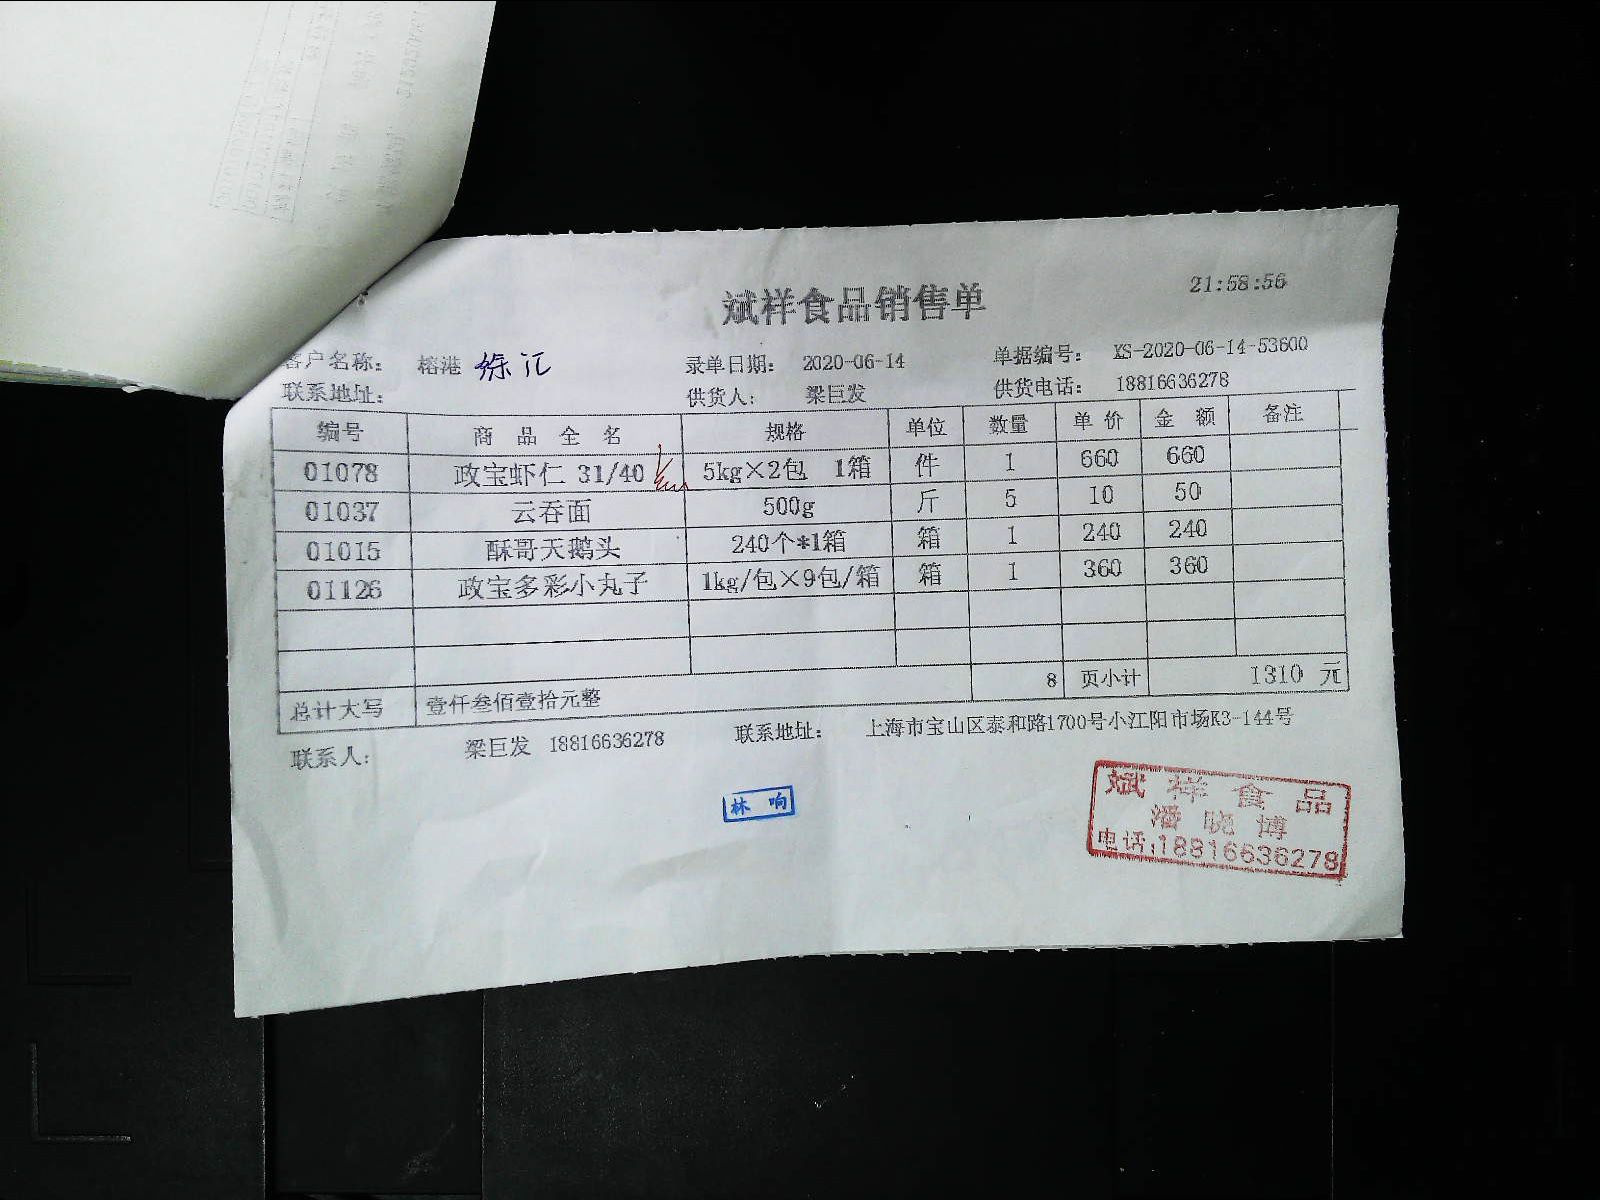 斌祥食品销售单
21:58:56
客户名称： 榕港 徐汇 录单日期： 2020-06-14 单据编号： XS-2020-06-14-53600
联系地址： 供货人： 梁巨发 供货电话： 18816636278
编号 商品全名 规格 单位 数量 单价 金额 备注
01078 政宝虾仁 31/40 5kg×2包 1箱 件 1 660 660
01037 云吞面 500g 斤 5 10 50
01015 酥哥天鹅头 240个*1箱 箱 1 240 240
01126 政宝多彩小丸子 1kg/包×9包/箱 箱 1 360 360
总计大写 壹仟叁佰壹拾元整 8 页小计 1310 元
联系人： 梁巨发 18816636278 联系地址： 上海市宝山区泰和路1700号小江阳市场K3-144号
林 响
斌祥食品
潘晓博
电话:18816636278